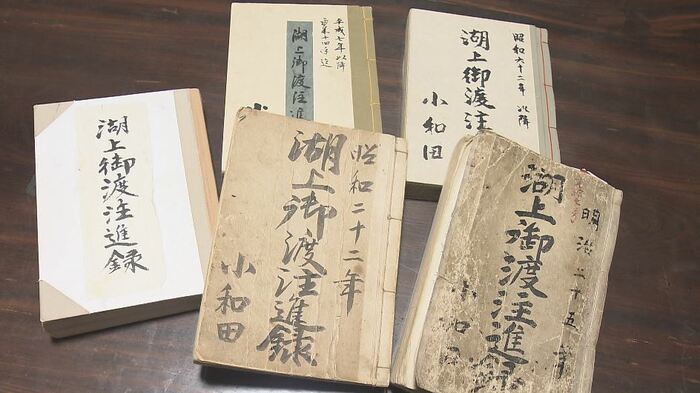 湖上御渡注進録
平成七年以降
湖上御渡注進
昭和六十二年以降
湖上御渡注
小和田
昭和二十二年
湖上御渡注進録
小和田
明治二十五年
湖上御渡注進録
小和田